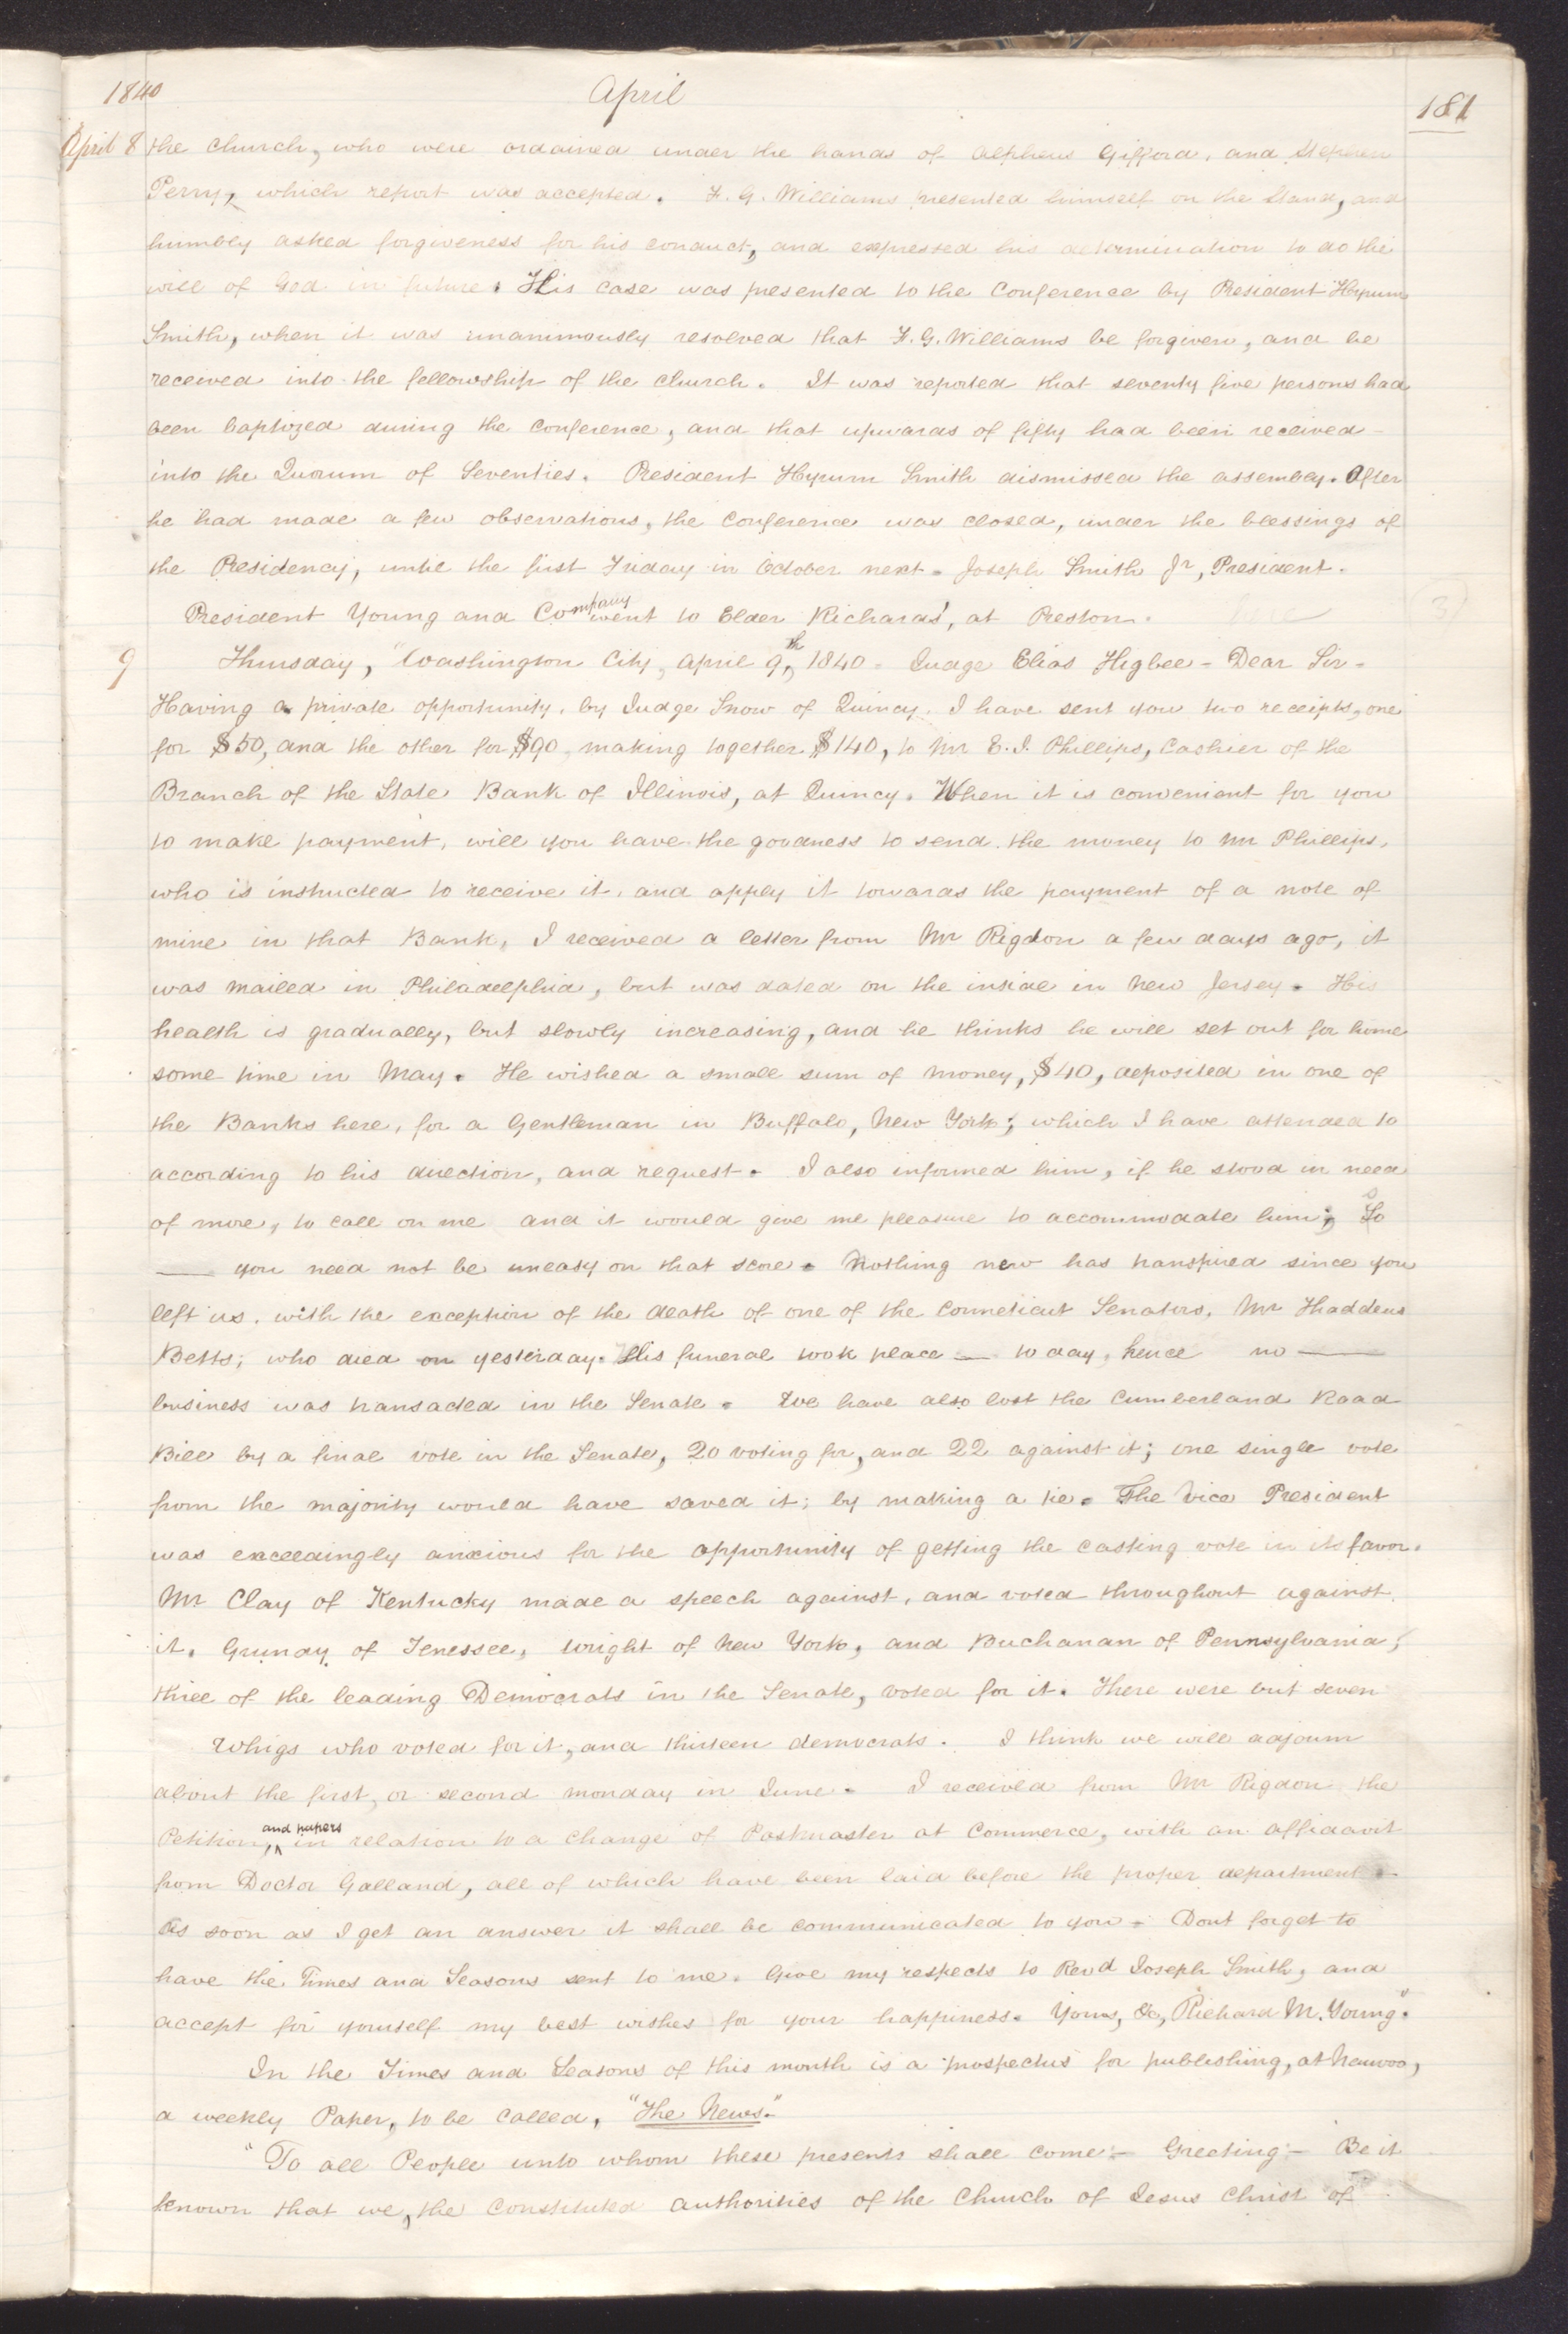 1840 April 181
April 8 the church, who were ordained under the hands of Alpheus Gifford, and Stephen
Perry, which report was accepted. F. G. Williams presented himself on the Stand, and
humbly asked forgiveness for his conduct, and expressed his determination to do the
will of God in future. His case was presented to the Conference by President Hyrum
Smith, when it was unanimously resolved that F. G. Williams be forgiven, and be
received into the fellowship of the church. It was reported that seventy five persons had
been baptized during the conference, and that upwards of fifty had been received
into the Quorum of Seventies. President Hyrum Smith dismissed the assembly. After
he had made a few observations, the conference was closed, under the blessings of
the Presidency, until the first Friday in October next. Joseph Smith Jr, President.
President Young and Company went to Elder Richards', at Preston.
9 Thursday, "Washington City, April 9,th 1840 - Judge Elias Higbee - Dear Sir -
Having a private opportunity, by Judge Snow of Quincy, I have sent you two receipts, one
for $50, and the other for $90, making together $140, to Mr E. J. Phillips, Cashier of the
Branch of the State Bank of Illinois, at Quincy. When it is convenient for you
to make payment, will you have the goodness to send the money to Mr Phillips,
who is instructed to receive it, and apply it towards the payment of a note of
mine in that Bank, I received a letter from Mr Rigdon a few days ago, it
was mailed in Philadelphia, but was dated on the inside in New Jersey. His
health is gradually, but slowly increasing, and he thinks he will set out for home
some time in May. He wished a small sum of money, $40, deposited in one of
the Banks here, for a Gentleman in Buffalo, New York; which I have attended to
according to his direction, and request. I also informed him, if he stood in need
of more, to call on me and it would give me pleasure to accommodate him; So
— you need not be uneasy on that score. Nothing new has transpired since you
left us, with the exception of the death of one of the Conneticut Senators, Mr Thaddeus
Betts; who died on yesterday. His funeral took place — to day, hence no —
business was transacted in the Senate. We have also lost the Cumberland Road
Bill by a final vote in the Senate, 20 voting for, and 22 against it; one single vote
from the majority would have saved it; by making a tie. The Vice President
was exceedingly anxious for the opportunity of getting the casting vote in its favor.
Mr Clay of Kentucky made a speech against, and voted throughout against
it. Grundy of Tenessee, Wright of New York, and Buchanan of Pennsylvania;
three of the leading Democrats in the Senate, voted for it. There were but seven
Whigs who voted for it, and thirteen democrats. I think we will adjourn
about the first, or second monday in June. I received from Mr Rigdon the
Petition, and papers in relation to a change of Postmaster at Commerce, with an affidavit
from Doctor Galland, all of which have been laid before the proper department.
As soon as I get an answer it shall be communicated to you. Dont forget to
have the Times and Seasons sent to me. Give my respects to Revd Joseph Smith, and
accept for yourself my best wishes for your happiness. Yours, &c, Richard M. Young".
In the Times and Seasons of this month is a prospectus for publishing, at Nauvoo,
a weekly Paper, to be called, "The News."
"To all People unto whom these presents shall come - Greeting - Be it
known that we, the constituted authorities of the Church of Jesus Christ of